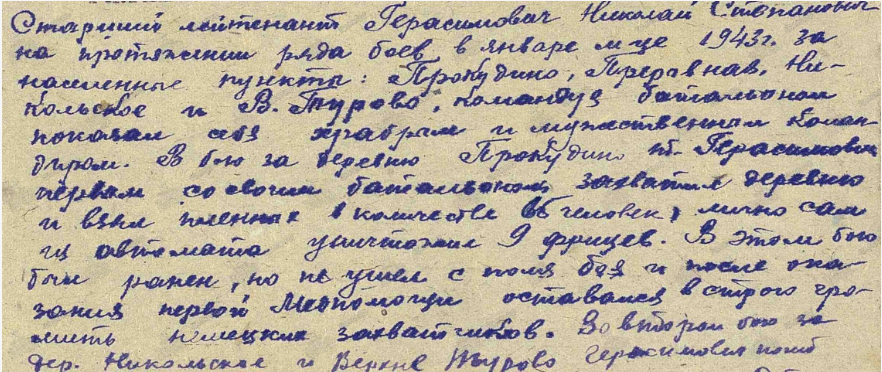 Старший лейтенант Герасимович Николай Степанович
на протяжении ряда боев в январе м-це 1943г. за
населенные пункты: Прокудино, Ни-
кольское и В. Турово, командуя батальоном
показал себя храбрым и мужественным коман-
диром. В бою за деревню Прокудино т. Герасимович
первым со своим батальоном захватил деревню
и взял пленных в количестве человек, лично сам
из автомата уничтожил 9 фрицев. В этом бою
был ранен, но не ушел с поля боя и после ока-
зания первой медпомощи оставался в строю гро-
мить немецких захватчиков. Во втором бою за
дер. Никольское и Верхне Турово Герасимович